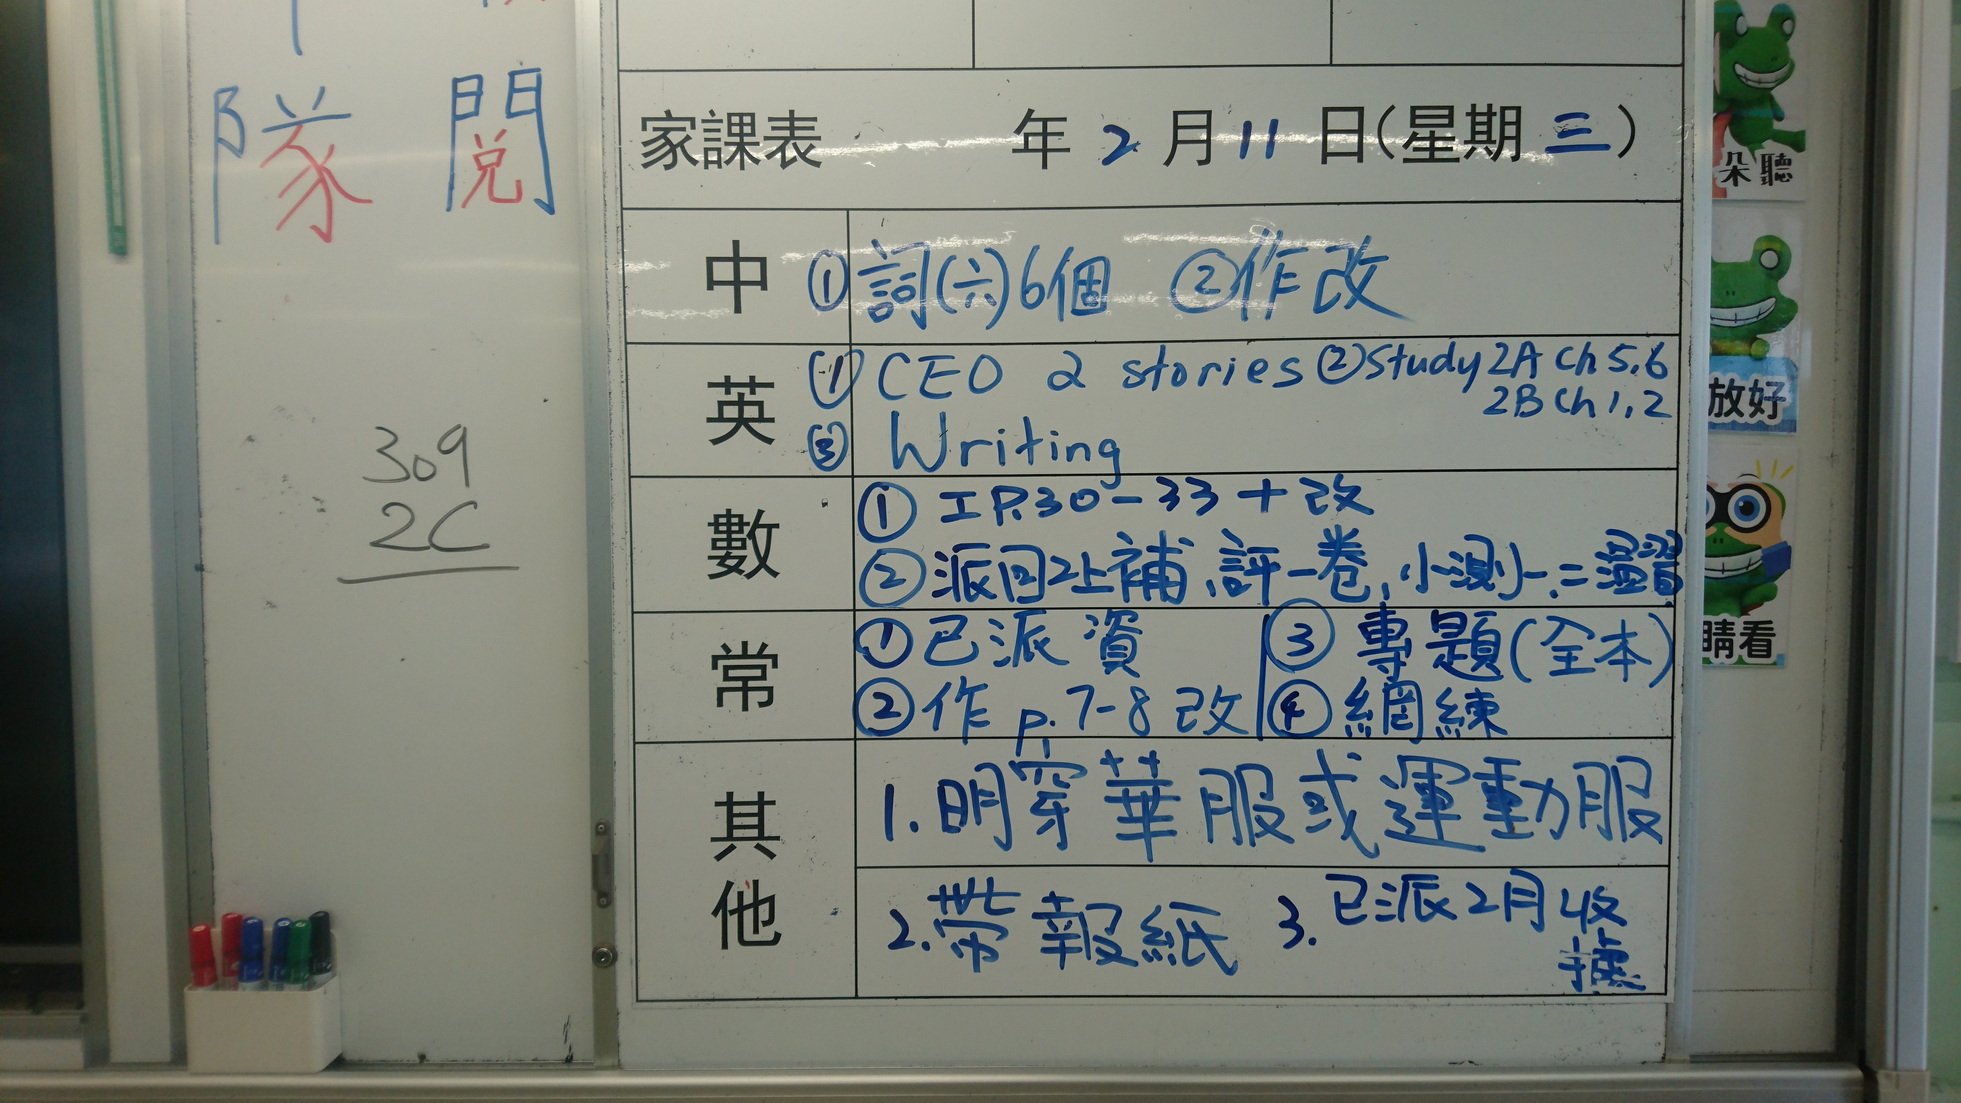 隊 閱
309
2C
家課表 年 2 月 11 日(星期 三)
中 ① 詞(六)6個 ②作改
英 ① CEO 2 stories ②Study 2A Ch 5,6
2B Ch 1,2
③ Writing
數 ① 工 P.30-33+改
② 派回2上補,評一卷,小測一.二溫習
常 ①已派資 ③ 專題(全本)
②作 p.7-8 改 ④ 網練
其他 1.明穿華服或運動服
2.帶報紙 3.已派2月收
據
朵聽
放好
睛看